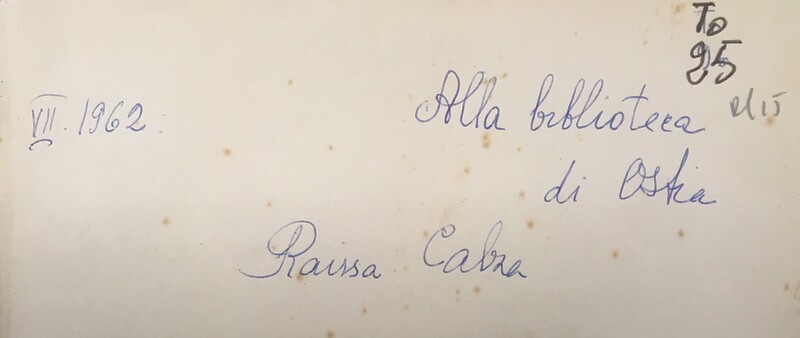 To
25
VII. 1962.
Alla biblioteca
di Ostia
Raissa Calza